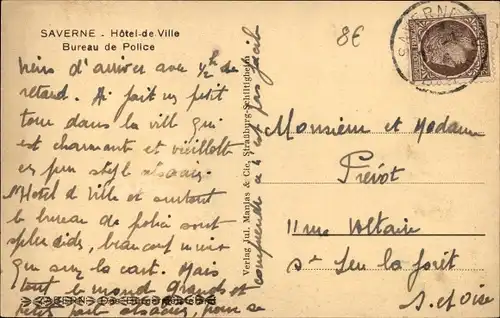 SAVERNE - Hôtel-de-Ville
Bureau de Police
8€
SAVERNE
Viens d'arriver avec ½ h de
retard. Ai fait un petit
tour dans la ville qui
est charmante et vieillotte
en pur style alsacien.
Hôtel de Ville et surtout
le bureau de police sont
splendides, beaucoup mieux
que sur la carte. Mais
tout le monde grands et
petits parle alsacien, pour se
comprendre c'est pas facile
Verlag Jul. Manias & Cie, Straßburg-Schiltigheim
Monsieur et Madame
Prévot
11 rue Voltaire
St Leu la forêt
S. et Oise